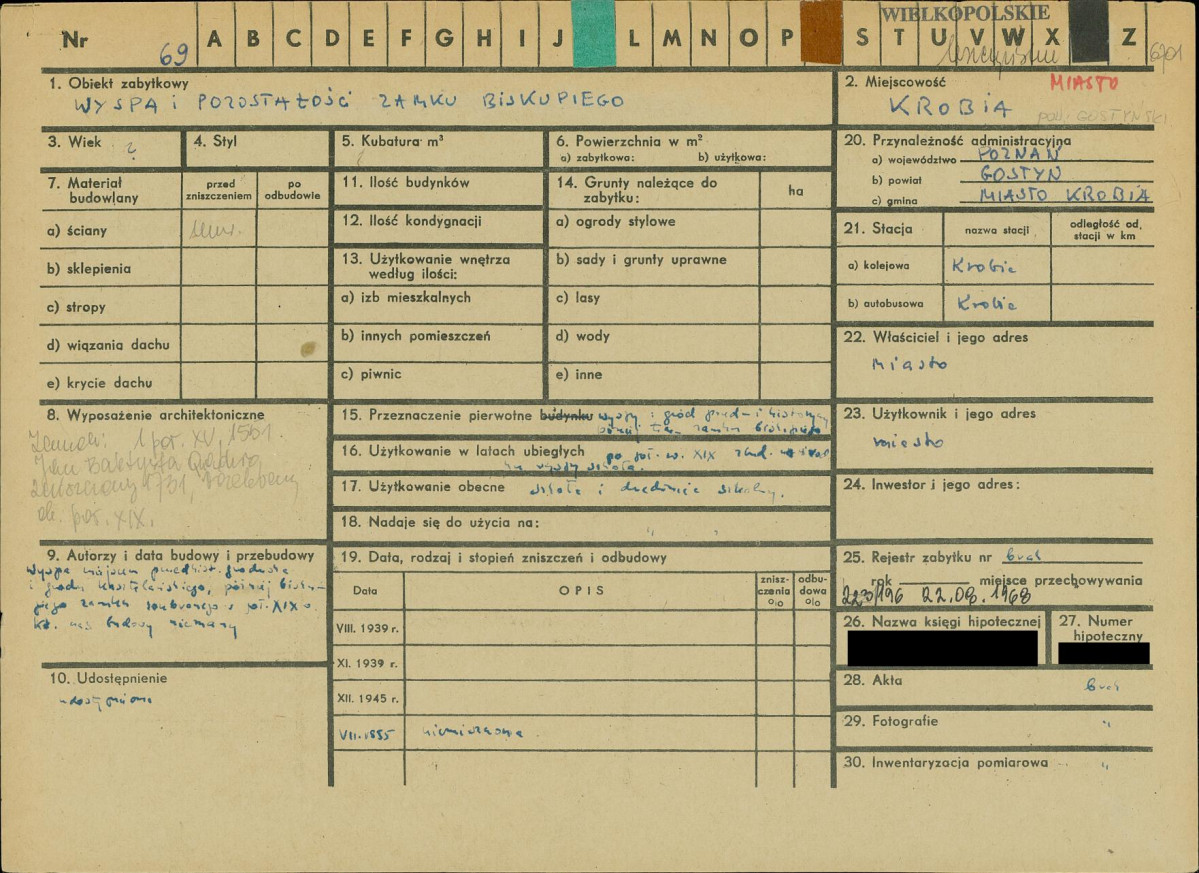 WIELKOPOLSKIE
Nr 69 A B C D E F G H I J L M N O P S T U V W X Z
6701
1. Obiekt zabytkowy
WYSPA i POZOSTAŁOŚCI ZAMKU BISKUPIEGO
2. Miejscowość MIASTO
KROBIA
pow. GOSTYŃSKI
3. Wiek ?
4. Styl
5. Kubatura m³
6. Powierzchnia w m²
a) zabytkowa: b) użytkowa:
20. Przynależność administracyjna
a) województwo POZNAŃ
b) powiat GOSTYŃ
c) gmina MIASTO KROBIA
7. Materiał budowlany
przed zniszczeniem
po odbudowie
a) ściany
b) sklepienia
c) stropy
d) wiązania dachu
e) krycie dachu
11. Ilość budynków
12. Ilość kondygnacji
13. Użytkowanie wnętrza
według ilości:
a) izb mieszkalnych
b) innych pomieszczeń
c) piwnic
14. Grunty należące do
zabytku:
ha
a) ogrody stylowe
b) sady i grunty uprawne
c) lasy
d) wody
e) inne
21. Stacja
nazwa stacji
odległość od stacji w km
a) kolejowa Krobia
b) autobusowa Krobia
22. Właściciel i jego adres
miasto
8. Wyposażenie architektoniczne
Zamek: 1 poł. XV, 1561.
Jan Baptysta Quadro
zniszczony 1731, rozebrany
ok. poł. XIX.
15. Przeznaczenie pierwotne budynku wyspy: gród
16. Użytkowanie w latach ubiegłych po poł. w. XIX
na wyspy szkoła.
17. Użytkowanie obecne szkoła i dziedziniec szkolny.
18. Nadaje się do użycia na: "
23. Użytkownik i jego adres
miasto
24. Inwestor i jego adres:
9. Autorzy i data budowy i przebudowy
Wyspa miejscem przedhist. grodziska
i grodu kasztelańskiego, później bisku-
piego zamku zburzonego w poł. XIX w.
10. Udostępnienie
udostępniona
19. Data, rodzaj i stopień zniszczeń i odbudowy
Data
OPIS
zniszczenia %
odbudowa %
VIII. 1939 r.
XI. 1939 r.
XII. 1945 r.
VII. 1955
25. Rejestr zabytku nr brak
rok miejsce przechowywania
223/196 22.08.1968
26. Nazwa księgi hipotecznej
27. Numer
hipoteczny
28. Akta brak
29. Fotografie "
30. Inwentaryzacja pomiarowa "